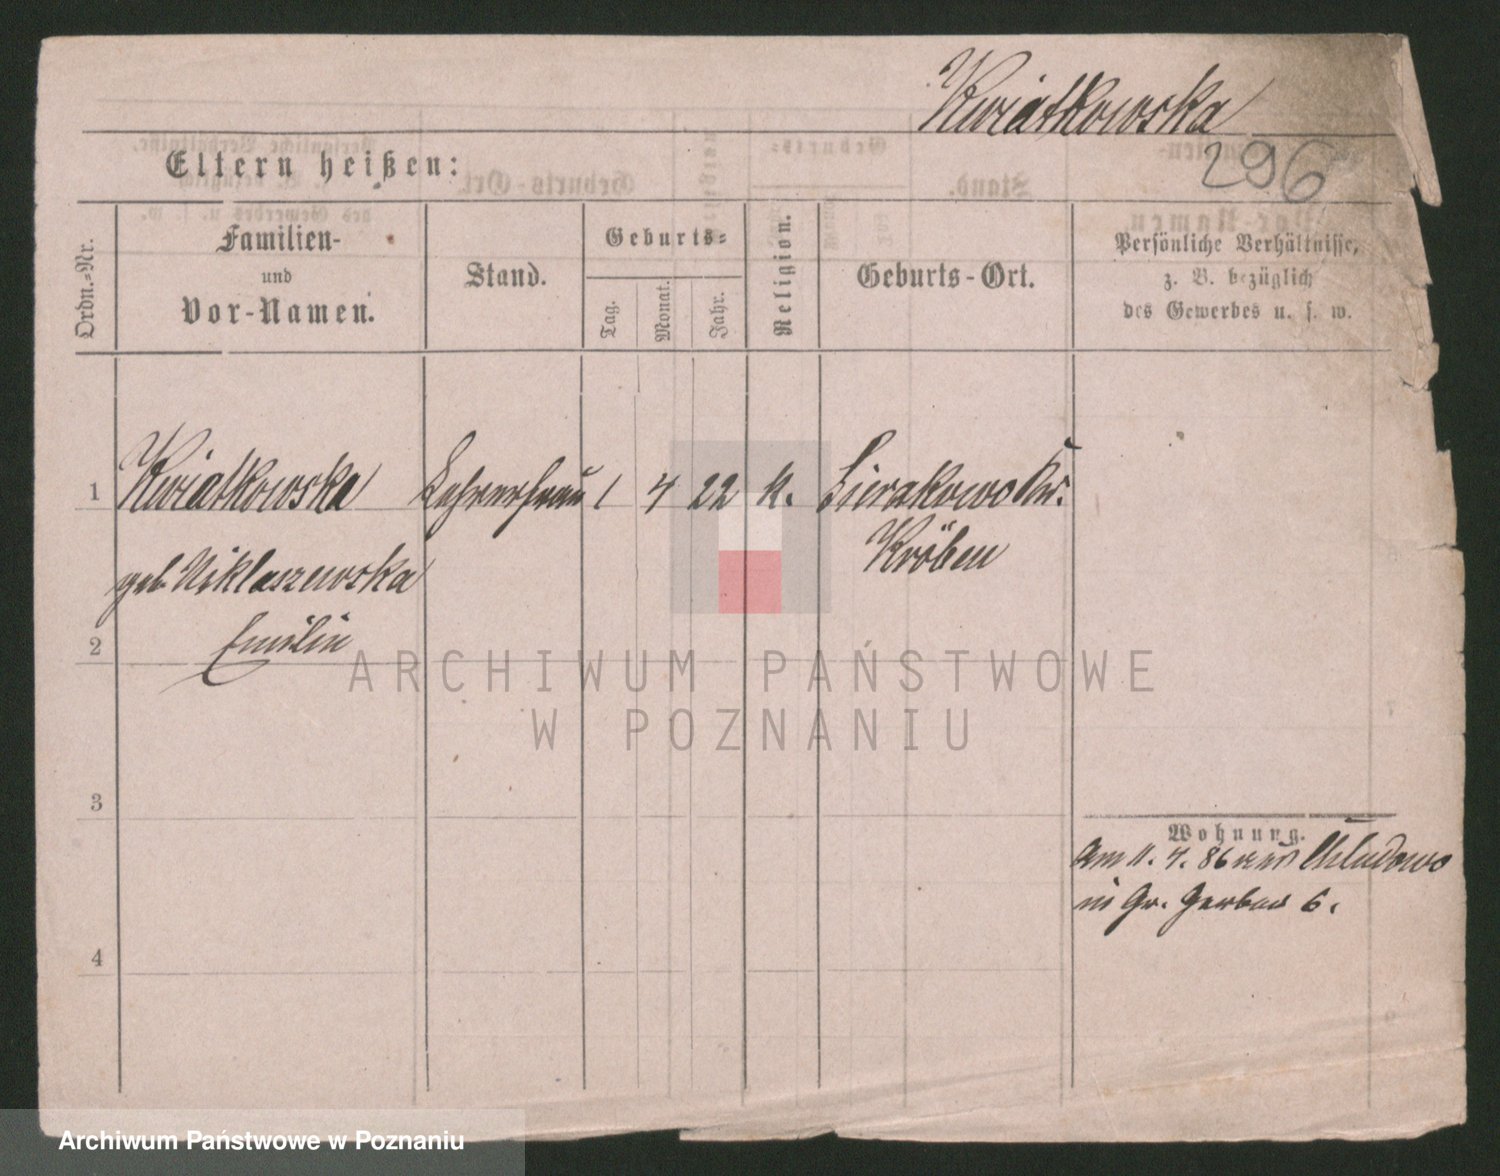 Kwiatkowska
296
Eltern heißen:
Ordn.-Nr.
Familien-
und
Vor-Namen.
Stand.
Geburts-
Tag.
Monat.
Jahr.
Religion.
Geburts-Ort.
Persönliche Verhältnisse,
z. B. bezüglich
des Gewerbes u. s. w.
1 Kwiatkowska Lehrerfrau 1 4 22 k. Sierakowo Kr.
Kröben
geb. Niklaszewska
2 Emilie
ARCHIWUM PAŃSTWOWE
W POZNANIU
3
Wohnung.
am 11. 4. 86 von Chludowo
in Gr. Gerber 6.
4
Archiwum Państwowe w Poznaniu